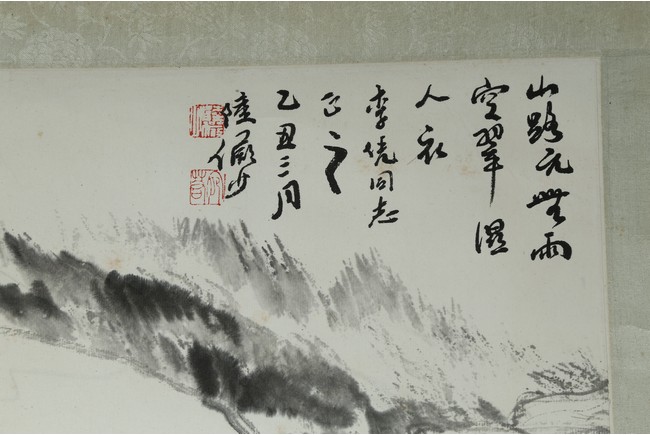 山路元無雨
空翠濕
人衣
李同志
正之
乙丑三月
陸儼少